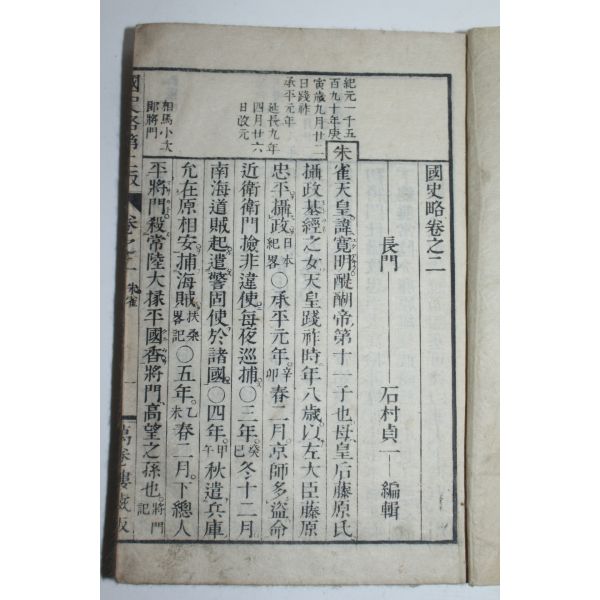 國史略卷之二
長門 石村貞一 編輯
紀元一千五
百九十年庚
寅歲九月廿二
日踐祚
承平元年
延長九年
四月廿六
日改元
相馬小次
郎將門
朱雀天皇諱寬明醍醐帝第十一子也母皇后藤原氏
攝政基經之女天皇踐祚時年八歲以左大臣藤原
忠平攝政日本紀畧〇承平元年辛卯春二月京師多盜命
近衛衛門撿非違使每夜巡捕〇三年癸巳冬十二月
南海道賊起遣警固使於諸國〇四年甲午秋遣兵庫
允在原相安捕海賊扶桑畧記〇五年乙未春二月下總人
平將門殺常陸大掾平國香將門高望之孫也將門記
國史略第二版 卷之二 朱雀 一 萬卷樓藏版